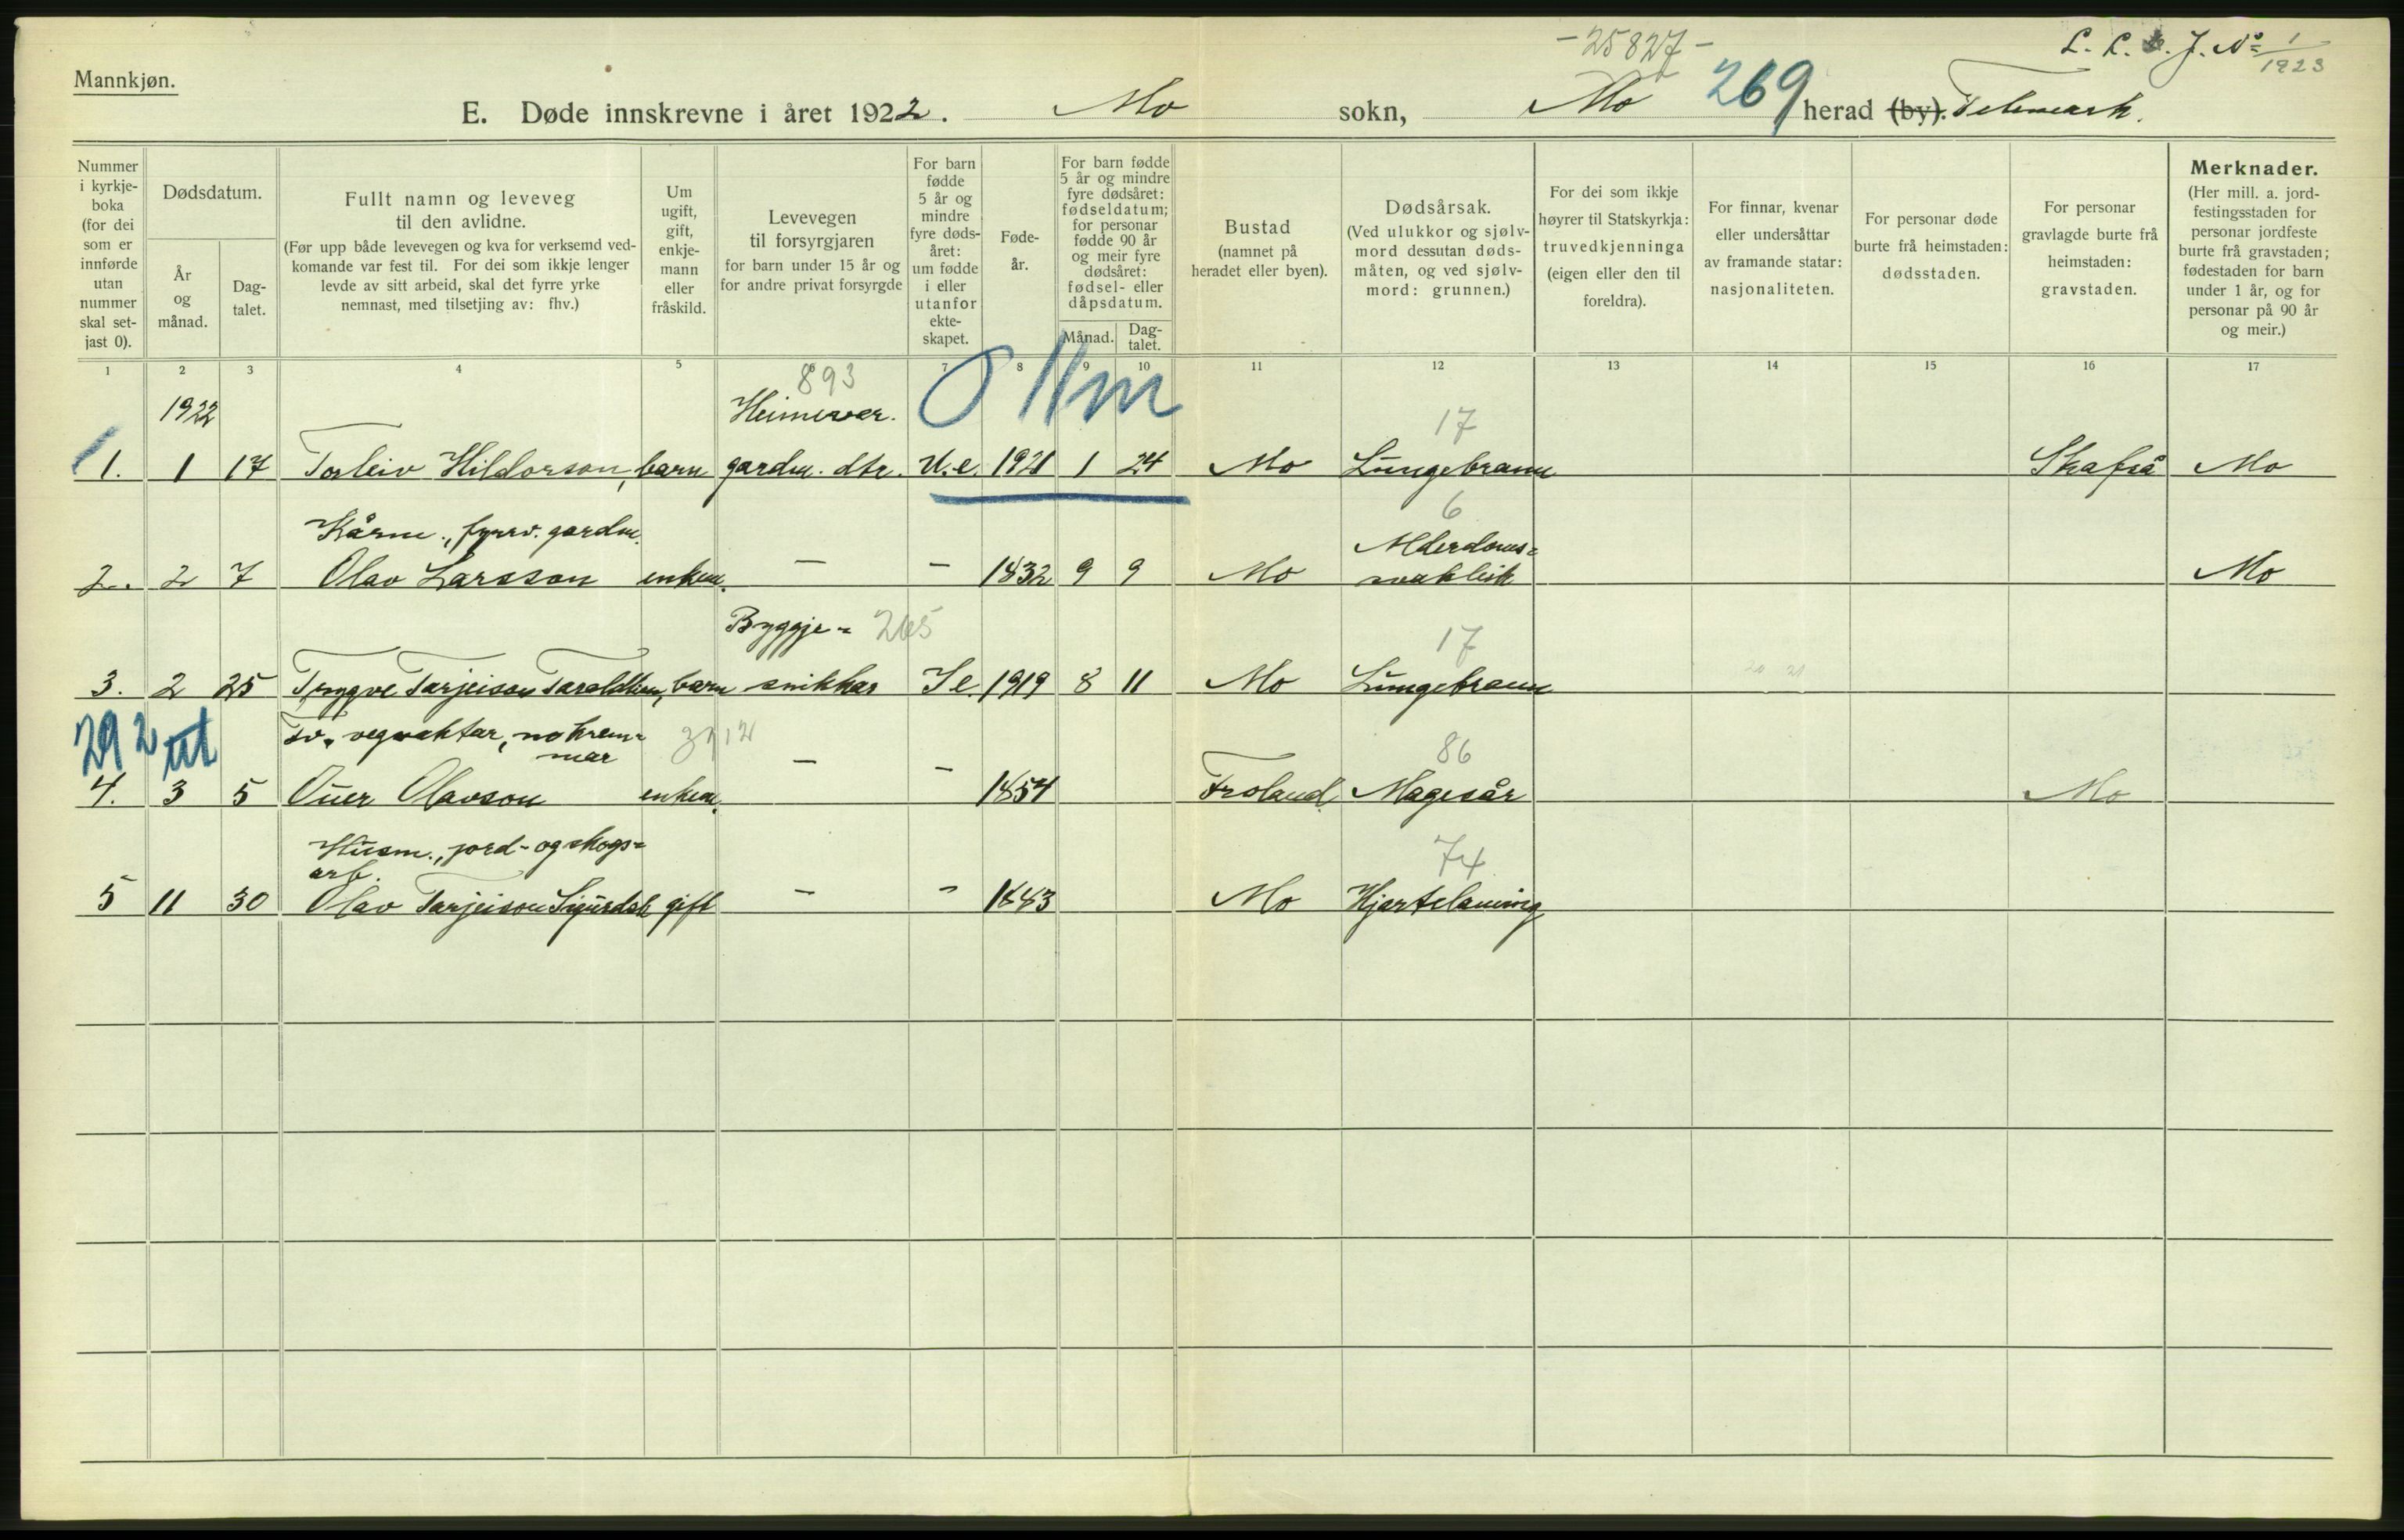 - 25827 -
L. R. J. No 1/1923
Mannkjøn.
E. Døde innskrevne i året 1922. Mo sokn, Mo 269 herad (by). Telemark.
Nummer i kyrkje- boka (for dei som er innførde utan nummer skal set- jast 0).
Dødsdatum.
År og månad.
Dag- talet.
Fullt namn og leveveg til den avlidne.
(Før upp både levevegen og kva for verksemd ved- komande var fest til. For dei som ikkje lenger levde av sitt arbeid, skal det fyrre yrke nemnast, med tilsetjing av: fhv.)
Um ugift, gift, enkje- mann eller fråskild.
Levevegen til forsyrgjaren for barn under 15 år og for andre privat forsyrgde
For barn fødde 5 år og mindre fyre døds- året: um fødde i eller utanfor ekte- skapet.
Føde- år.
For barn fødde 5 år og mindre fyre dødsåret: fødseldatum; for personar fødde 90 år og meir fyre dødsåret: fødsel- eller dåpsdatum.
Månad.
Dag- talet.
Bustad (namnet på heradet eller byen).
Dødsårsak.
(Ved ulukkor og sjølv- mord dessutan døds- måten, og ved sjølv- mord: grunnen.)
For dei som ikkje høyrer til Statskyrkja: truvedkjenninga (eigen eller den til foreldra).
For finnar, kvenar eller undersåttar av framande statar: nasjonaliteten.
For personar døde burte frå heimstaden: dødsstaden.
For personar gravlagde burte frå heimstaden: gravstaden.
Merknader.
(Her mill. a. jord- festingsstaden for personar jordfeste burte frå gravstaden; fødestaden for barn under 1 år, og for personar på 90 år og meir.)
1 2 3 4 5 6 7 8 9 10 11 12 13 14 15 16 17
893
1922 Heimever. 0 11m 17
1. 1 17 Torleiv Hildorson, barn gardm. dtr. U.e. 1921 1 24 Mo Lungebrann Skafså Mo
6
Kårm., fyrrv. gardm. Alderdoms=
2. 2 7 Olav Larsson enkem. — — 1832 9 9 Mo svakleik Mo
Byggje= 265 17
3. 2 25 Trygve Tarjeison Taraldlien, barn snikkar I e. 1919 8 11 Mo Lungebrann 20 21
292 ut
Fv. vegvaktar, no krem= mar 3712 86
4. 3 5 Ouer Olavson enkem. — — 1854 Froland Magesår Mo
Husm., jord- og skogs= arb. 74
5 11 30 Olav Tarjeison Sigurdsk gift — — 1883 Mo Hjartelaming